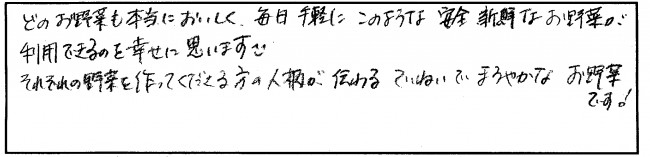 どのお野菜も本当においしく、毎日手軽にこのような安全新鮮なお野菜が
利用できるのを幸せに思います。
それぞれの野菜を作ってくださる方の人柄が伝わるていねいでまろやかなお野菜
です!